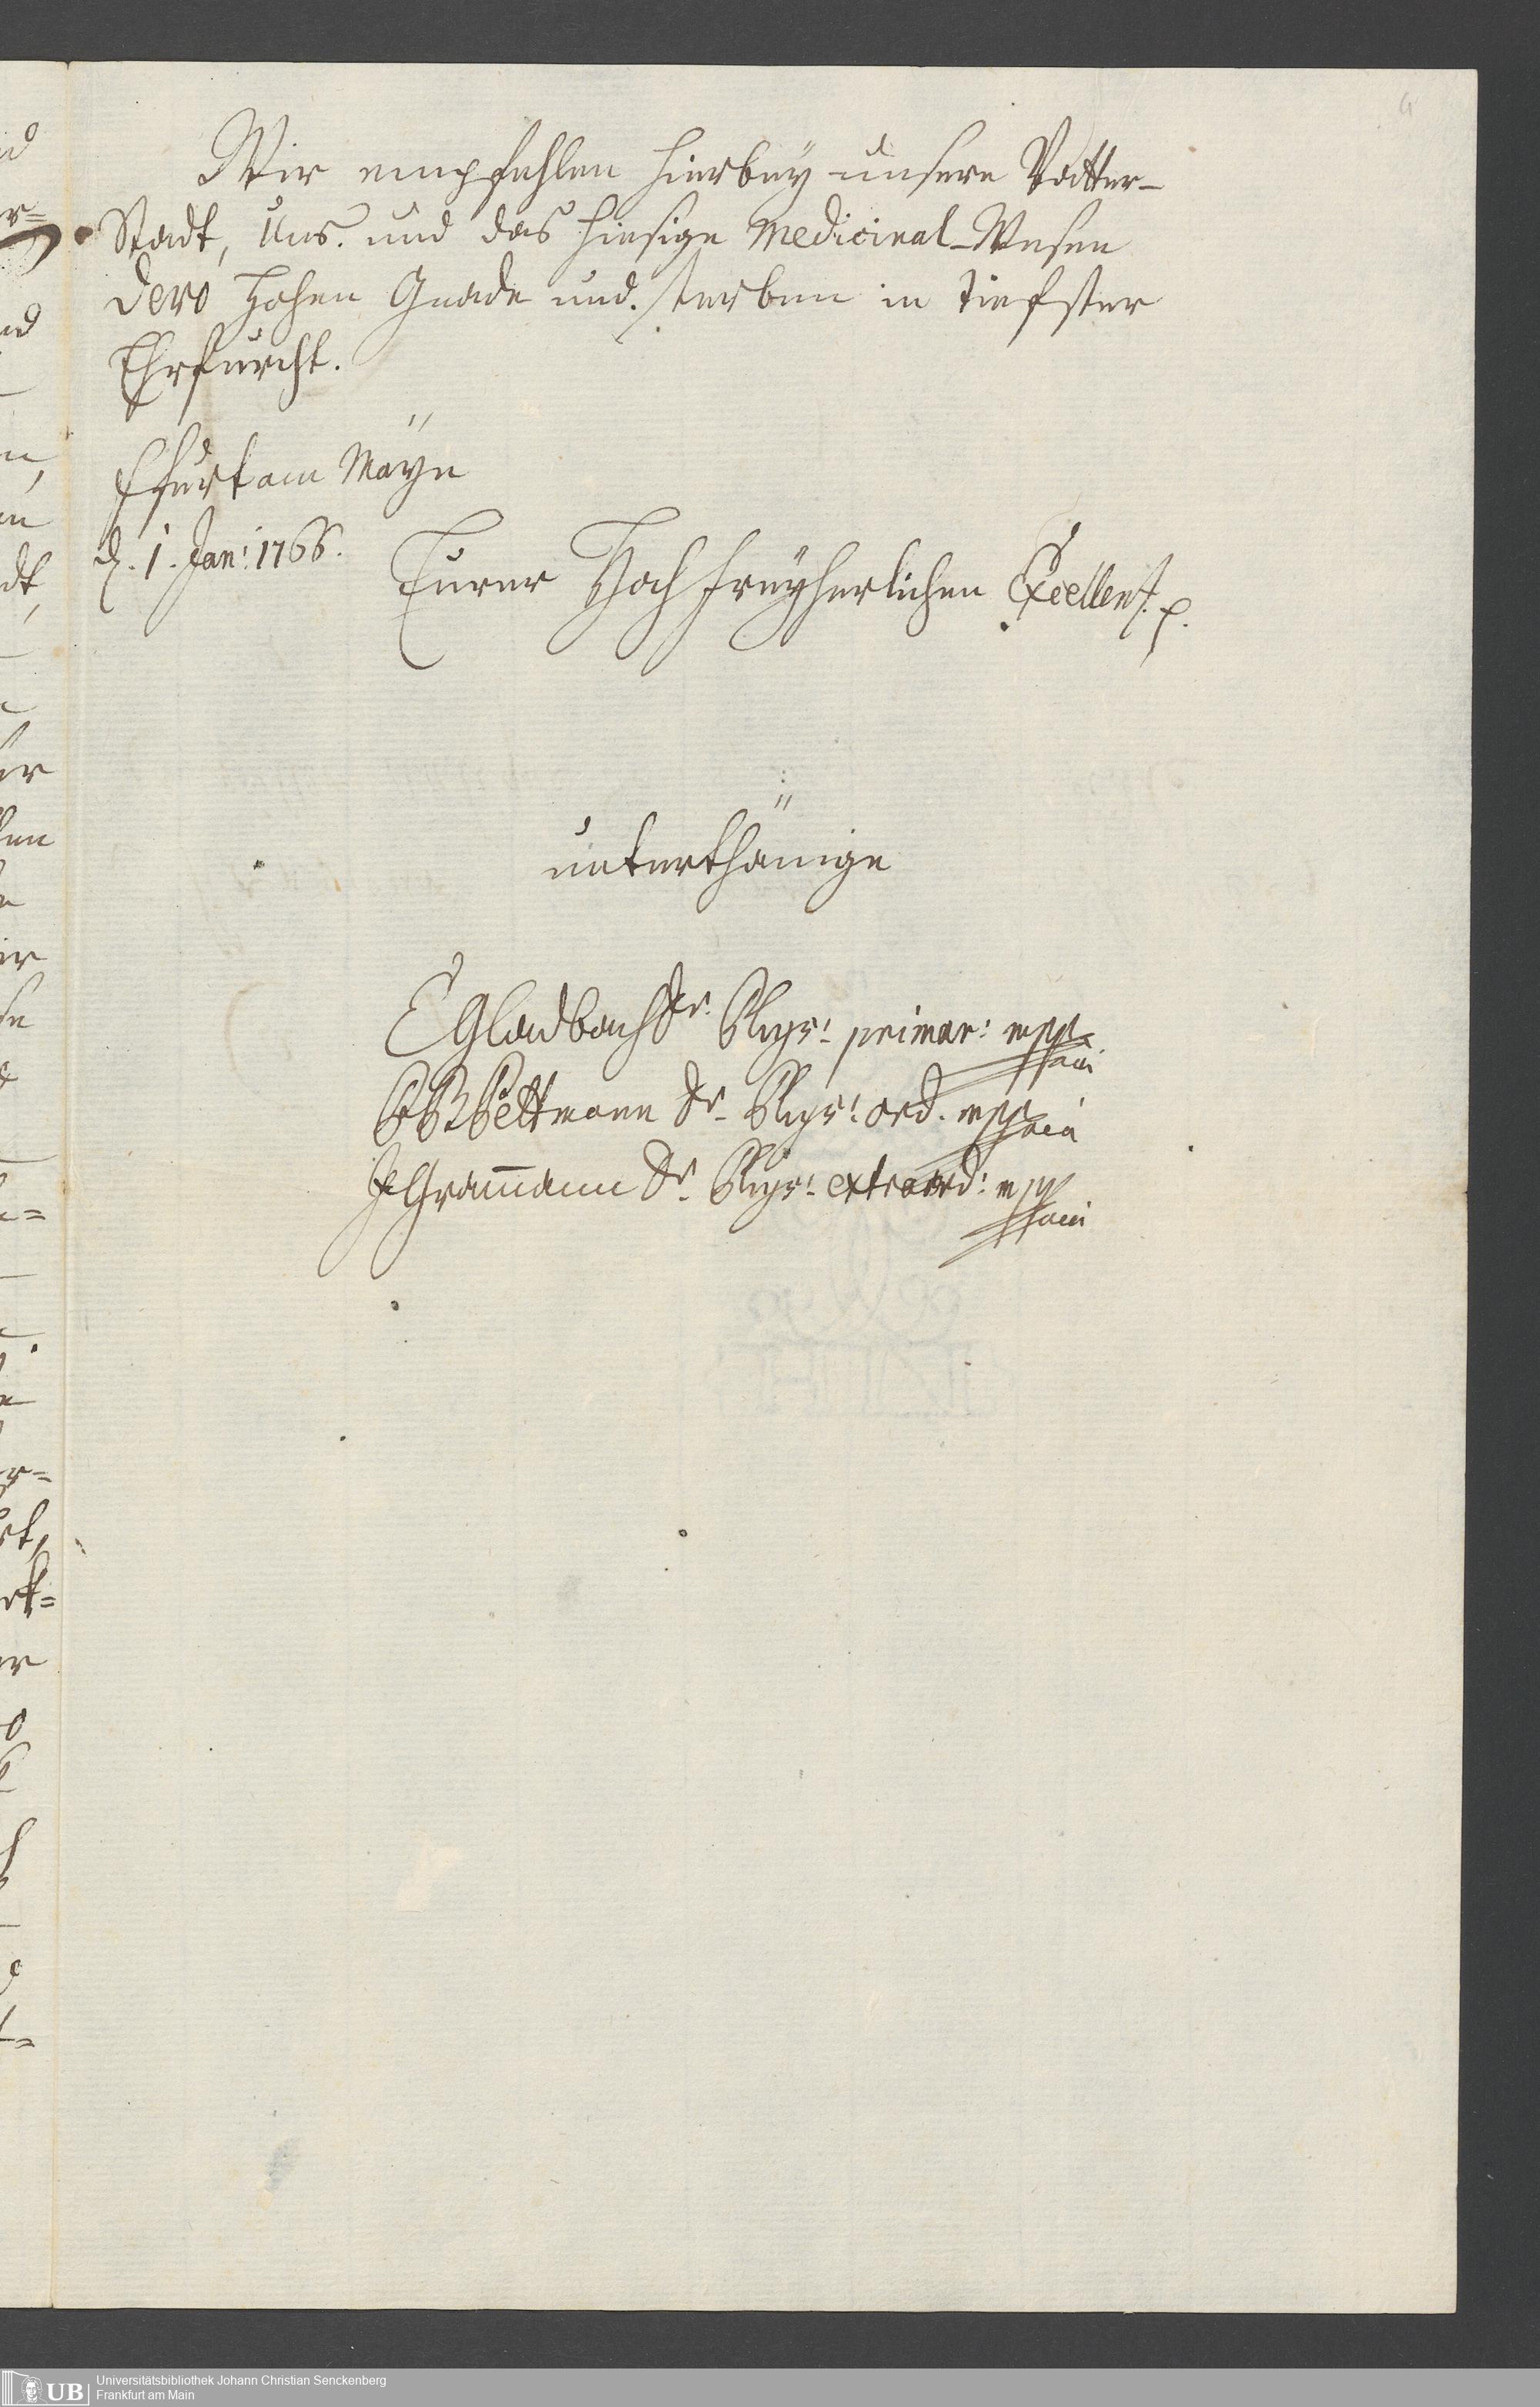 Wir empfehlen hierbey unsere Vatter-
Stadt, Uns. und das hiesige Medicinal-Wesen
Dero Hohen Gnade und sterben in tiefster
Ehrfurcht.
Ffurt am Mäyn
d. 1. Jan: 1766.
Eurer Hochfreyherlichen Excellenz. p.
unterthänige
EGladbach Dr. Phys: primar: mpp
Pettmann Dr. Phys: ord. mpp
Gramann Dr. Phys: extraord: mpp
4
UB
Universitätsbibliothek Johann Christian Senckenberg
Frankfurt am Main